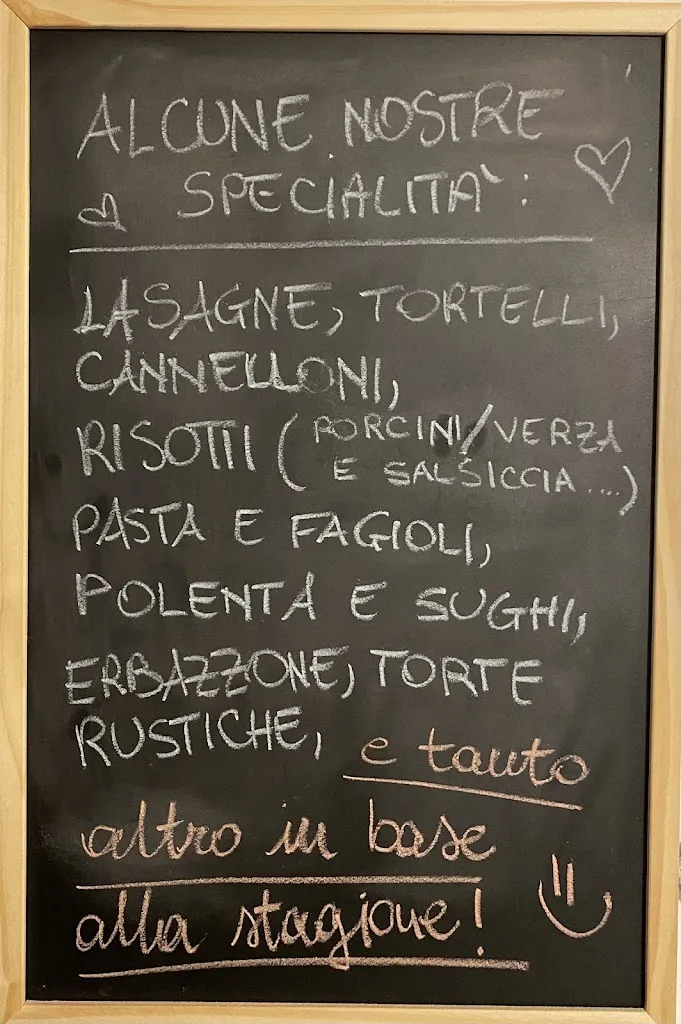 ALCUNE NOSTRE
SPECIALITÀ:
LASAGNE, TORTELLI,
CANNELLONI,
RISOTTI (PORCINI/VERZA
E SALSICCIA....)
PASTA E FAGIOLI,
POLENTA E SUGHI,
ERBAZZONE, TORTE
RUSTICHE, e tanto
altro in base
alla stagione!